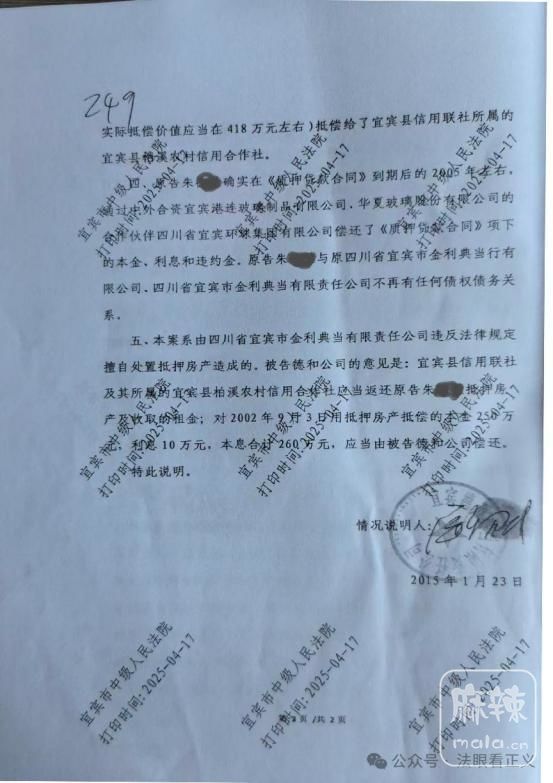 249
实际抵偿价值应当在418万元左右)抵偿给了宜宾县信用联社所属的
宜宾县柏溪农村信用合作社。
四、原告朱 确实在《质押贷款合同》到期后的2005年左右,
通过中外合资宜宾港连玻璃制品有限公司、华夏玻璃股份有限公司的
合作伙伴四川省宜宾环球集团有限公司偿还了《质押贷款合同》项下
的本金、利息和违约金。原告朱 与原四川省宜宾市金利典当行有
限公司、四川省宜宾市金利典当有限责任公司不再有任何债权债务关
系。
五、本案系由四川省宜宾市金利典当有限责任公司违反法律规定
擅自处置抵押房产造成的。被告德和公司的意见是:宜宾县信用联社
及其所属的宜宾县柏溪农村信用合作社应当返还原告朱 抵押房
产及收取的租金;对2002年9月3日用抵押房产抵偿的本金250万
元,利息10万元,本息合计260万元,应当由被告德和公司偿还。
特此说明。
情况说明人:
2015年1月23日
第2页/共2页
宜宾市中级人民法院
打印时间:2025-04-17
宜宾市中级人民法院
打印时间:2025-04-17
宜宾市中级人民法院
打印时间:2025-04-17
宜宾市中级人民法院
打印时间:2025-04-17
宜宾市中级人民法院
打印时间:2025-04-17
宜宾市中级人民法院
打印时间:2025-04-17
宜宾市中级人民法院
打印时间:2025-04-17
宜宾市中级人民法院
打印时间:2025-04-17
宜宾市中级人民法院
打印时间:2025-04-17
麻辣
mala.cn
公众号 法眼看正义